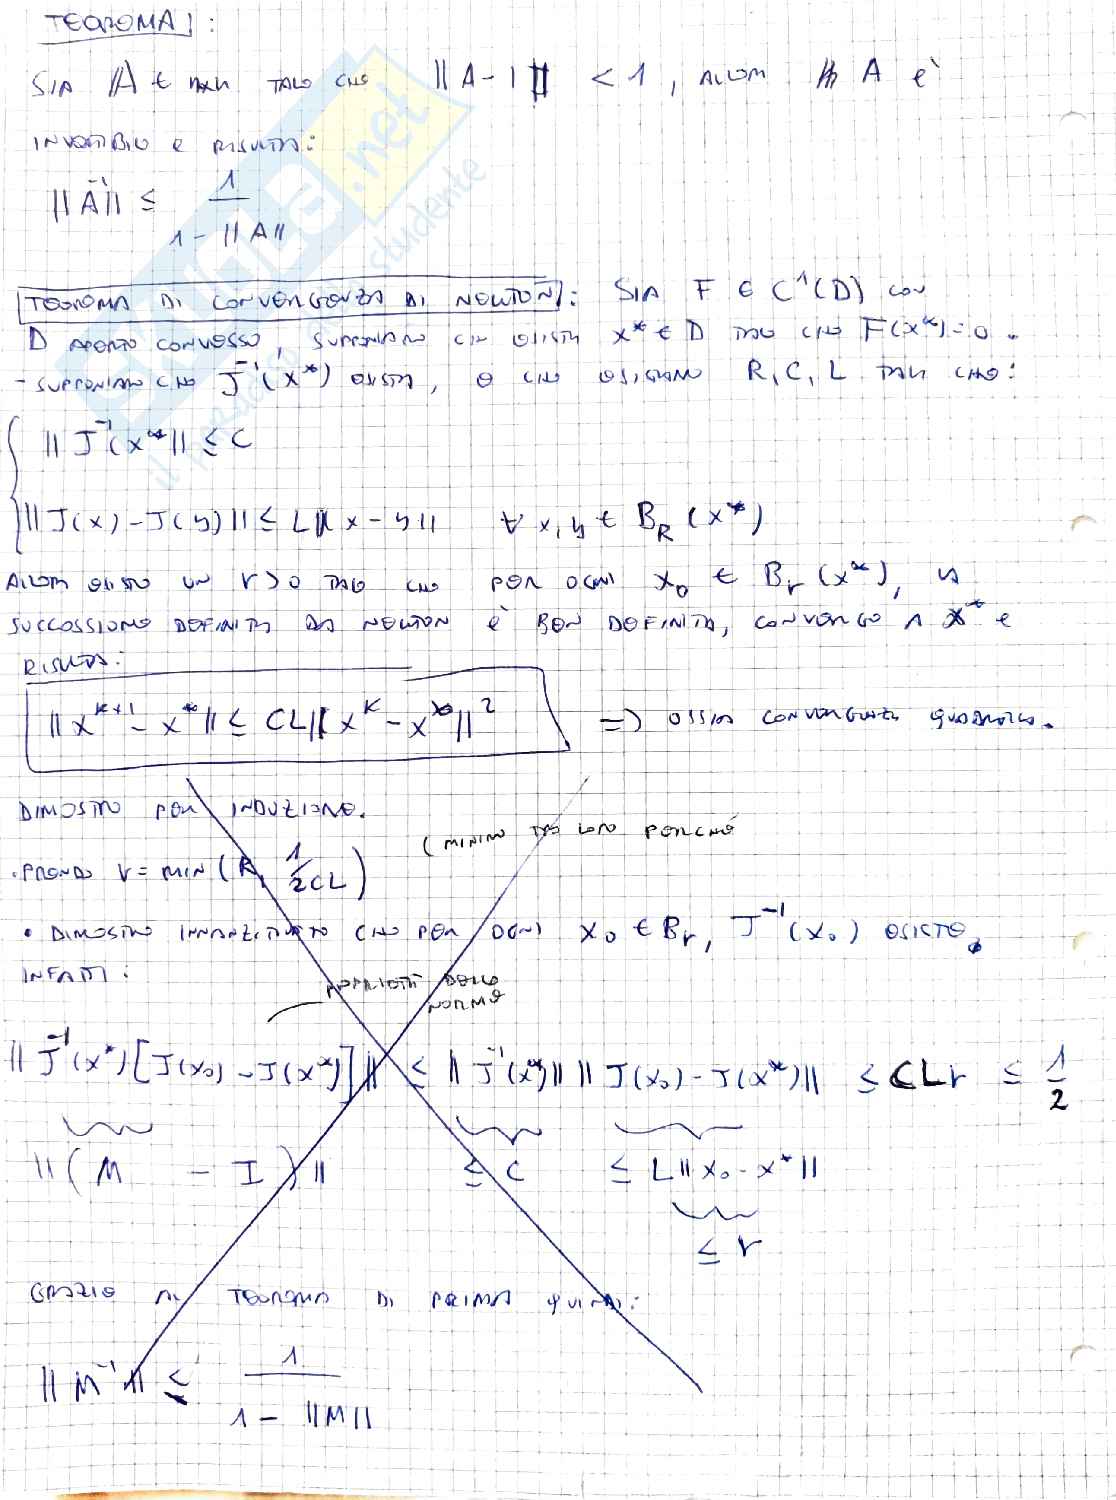 TEOREMA:
SIA A ∈ nxn TALE CHE ||A-I|| < 1, ALLORA A è
INVERTIBILE E RISULTA:
||A⁻¹|| ≤ 1/(1-||A||)
TEOREMA DI CONVERGENZA DI NEWTON: SIA F ∈ C¹(D) CON
D APERTO CONVESSO, SUPPONIAMO CHE ESISTA x* ∈ D TALE CHE F(x*)=0.
- SUPPONIAMO CHE J⁻¹(x*) ESISTA, E CHE ESISTANO R, C, L TALI CHE:
||J⁻¹(x*)|| ≤ C
||J(x)-J(y)|| ≤ L||x-y|| ∀ x,y ∈ B_R(x*)
ALLORA ESISTE UN r>0 TALE CHE PER OGNI x₀ ∈ B_r(x*), LA
SUCCESSIONE DEFINITA DA NEWTON È BEN DEFINITA, CONVERGE A x* E
RISULTA:
||x^{k+1} - x*|| ≤ CL||x^k - x*||² => OSSIA CONVERGENZA QUADRATICA.
DIMOSTRO PER INDUZIONE.
(MINIMO TRA LORO PERCHÉ
· PRENDO r = MIN(R, 1/2CL)
• DIMOSTRO INNANZITUTTO CHE PER OGNI x₀ ∈ B_r, J⁻¹(x₀) ESISTE.
INFATTI:
PROPRIETÀ DELLE
NORME
||J⁻¹(x*)[J(x₀)-J(x*)]|| ≤ ||J⁻¹(x*)|| ||J(x₀)-J(x*)|| ≤ CLr ≤ 1/2
||(M - I)|| ≤ C ≤ L||x₀-x*||
≤ r
GRAZIE AL TEOREMA DI PRIMA QUINDI:
||M⁻¹|| ≤ 1/(1-||M||)